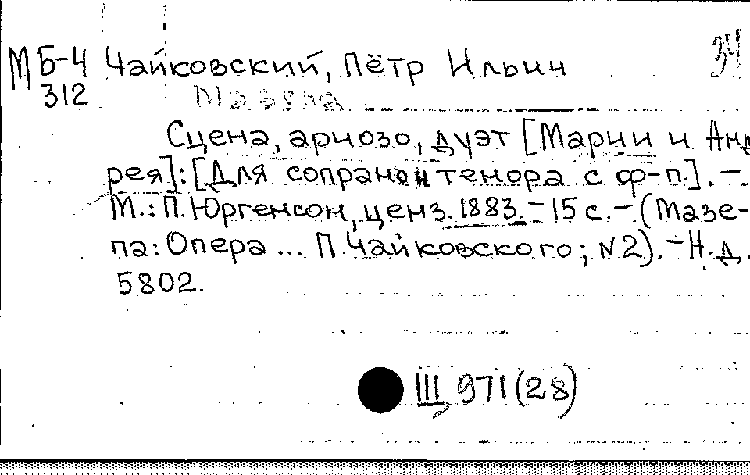 МБ-4 Чайковский, Пётр Ильич
312 Мазепа
Сцена, ариозо, дуэт [Марии и Анд
рея]: [Для сопрано и тенора с ф-п.]. –.
М.: П. Юргенсон, ценз. 1883. – 15 с. – (Мазе-
па: Опера ... П. Чайковского; N2). – Н.д.
5802.
III, 971(28)